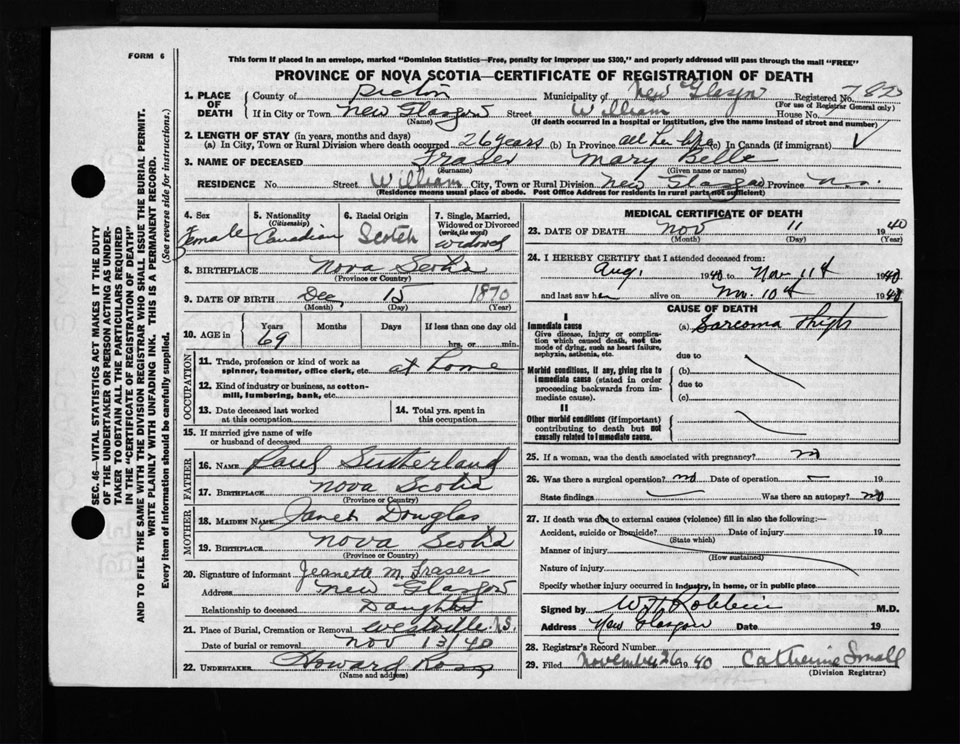 FORM 6
This form if placed in an envelope, marked "Dominion Statistics—Free, penalty for improper use $300," and properly addressed will pass through the mail "FREE"
PROVINCE OF NOVA SCOTIA—CERTIFICATE OF REGISTRATION OF DEATH
1. PLACE OF DEATH County of Pictou Municipality of New Glasgow Registered No.
(For use of Registrar General only)
If in City or Town New Glasgow Street William House No.
(Name) (If death occurred in a hospital or institution, give the name instead of street and number)
2. LENGTH OF STAY (in years, months and days)
(a) In City, Town or Rural Division where death occurred 26 years (b) In Province all her life (c) In Canada (if immigrant)
3. NAME OF DECEASED Fraser Mary Belle
(Surname) (Given name or names)
RESIDENCE No. Street William City, Town or Rural Division New Glasgow Province N.S.
(Residence means usual place of abode. Post Office Address for residents in rural parts not sufficient)
4. Sex Female
5. Nationality (Citizenship) Canadian
6. Racial Origin Scotch
7. Single, Married, Widowed or Divorced (write the word) Widowed
8. BIRTHPLACE Nova Scotia
(Province or Country)
9. DATE OF BIRTH Dec 15 1870
(Month) (Day) (Year)
10. AGE in Years 69 Months Days If less than one day old
hrs. or min.
OCCUPATION
11. Trade, profession or kind of work as spinner, teamster, office clerk, etc. at home
12. Kind of industry or business, as cotton-mill, lumbering, bank, etc.
13. Date deceased last worked at this occupation
14. Total yrs. spent in this occupation
15. If married give name of wife or husband of deceased
FATHER
16. NAME Paul Sutherland
17. BIRTHPLACE Nova Scotia
MOTHER
18. MAIDEN NAME Janet Douglas
19. BIRTHPLACE Nova Scotia
(Province or Country)
20. Signature of informant Jeanette M. Fraser
Address New Glasgow
Relationship to deceased Daughter
21. Place of Burial, Cremation or Removal Westville N.S.
Date of burial or removal Nov 13/40
22. UNDERTAKER Howard Ross
(Name and address)
MEDICAL CERTIFICATE OF DEATH
23. DATE OF DEATH Nov 11 1940
(Month) (Day) (Year)
24. I HEREBY CERTIFY that I attended deceased from:
Aug. 1940 to Nov 11th 1940
and last saw her alive on Nov. 10th 1940
CAUSE OF DEATH
I
Immediate cause (a) Sarcoma thigh
Give disease, injury or complication which caused death, not the mode of dying, such as heart failure, asphyxia, asthenia, etc.
due to
Morbid conditions, if any, giving rise to immediate cause (stated in order proceeding backwards from immediate cause).
(b)
due to
(c)
II
Other morbid conditions (if important) contributing to death but not causally related to immediate cause.
25. If a woman, was the death associated with pregnancy? no
26. Was there a surgical operation? no Date of operation 19
State findings Was there an autopsy? no
27. If death was due to external causes (violence) fill in also the following:—
Accident, suicide or homicide? Date of injury 19
(State which)
Manner of injury
(How sustained)
Nature of injury
Specify whether injury occurred in industry, in home, or in public place
Signed by M.D.
Address New Glasgow Date 19
28. Registrar's Record Number
29. Filed November 26 1940 Catherine Small
(Division Registrar)
SEC. 46—VITAL STATISTICS ACT MAKES IT THE DUTY
OF THE UNDERTAKER OR PERSON ACTING AS UNDER-
TAKER TO OBTAIN ALL THE PARTICULARS REQUIRED
IN THE "CERTIFICATE OF REGISTRATION OF DEATH"
AND TO FILE THE SAME WITH THE DIVISION REGISTRAR WHO SHALL ISSUE THE BURIAL PERMIT.
WRITE PLAINLY WITH UNFADING INK. THIS IS A PERMANENT RECORD.
Every item of information should be carefully supplied. (See reverse side for instructions.)